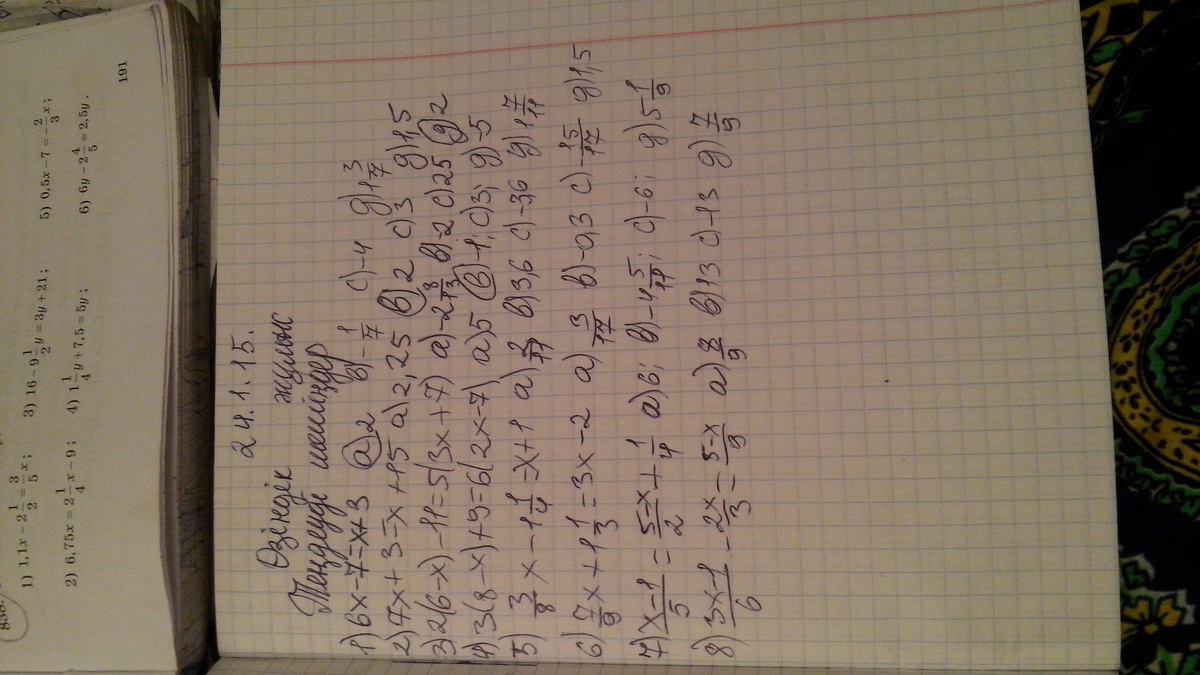 838.
1) 1,1x − 2 1/2 = 3/5 x;
2) 6,75x = 2 1/4 x − 9;
3) 16 − 9 1/2 y = 3y + 21;
4) 1 1/4 y + 7,5 = 5y;
5) 0,5x − 7 = − 2/3 x;
6) 6y − 2 4/5 = 2,5y.
191
24.1.15.
Өзіндік жұмыс
Теңдеуді шешіңдер
1) 6x−7=x+3 a) 2 в) −1/7 c) −4 д) 1 3/7
2) 7x+3=x+15 a) 2,25 в) 2 c) 3 д) 1,5
3) 2(6−x)−11=5(3x+7) a) −2 3/13 в) −2 c) 25 д) 2
4) 3(8−x)+9=6(2x−7) a) 5 в) −1; c) 3; д) −5
5) 3/8 x − 1 1/4 = x+1 a) 2/11 в) 3,6 c) −3,6 д) 1 7/11
6) 7/9 x + 1 1/3 = 3x − 2 a) 3/17 в) −0,3 c) −15/17 д) 1,5
7) x−1/5 = 5−x/2 + 1/4 a) 6; в) −4 5/19; c) −6; д) 5 1/9
8) 3x−1/6 − 2x/3 = 3−x/9 a) 8/9 в) 13 c) −13 д) 7/9